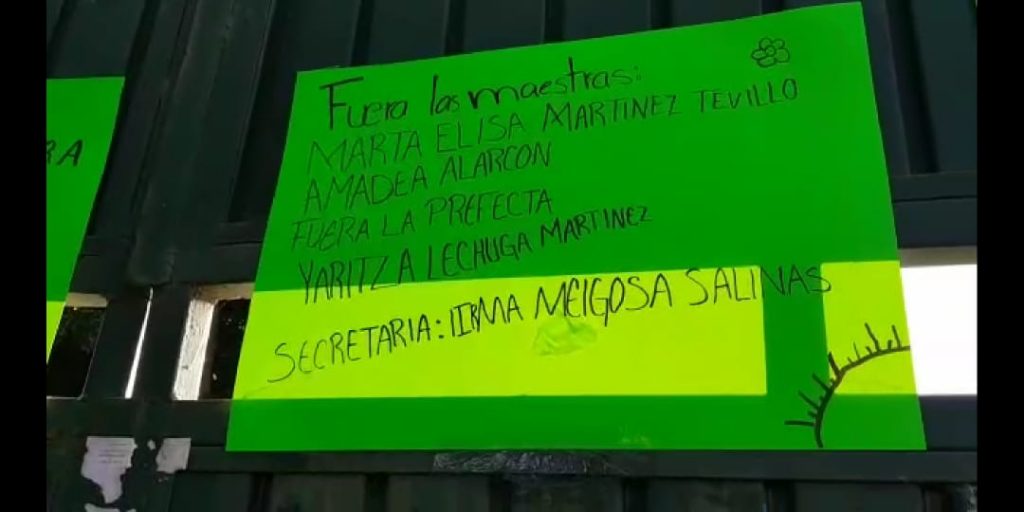 RA
Fuera las maestras:
MARTA ELISA MARTINEZ TEVILLO
AMADEA ALARCON
FUERA LA PREFECTA
YARITZA LECHUGA MARTINEZ
SECRETARIA: IIRMA MEIGOSA SALINAS